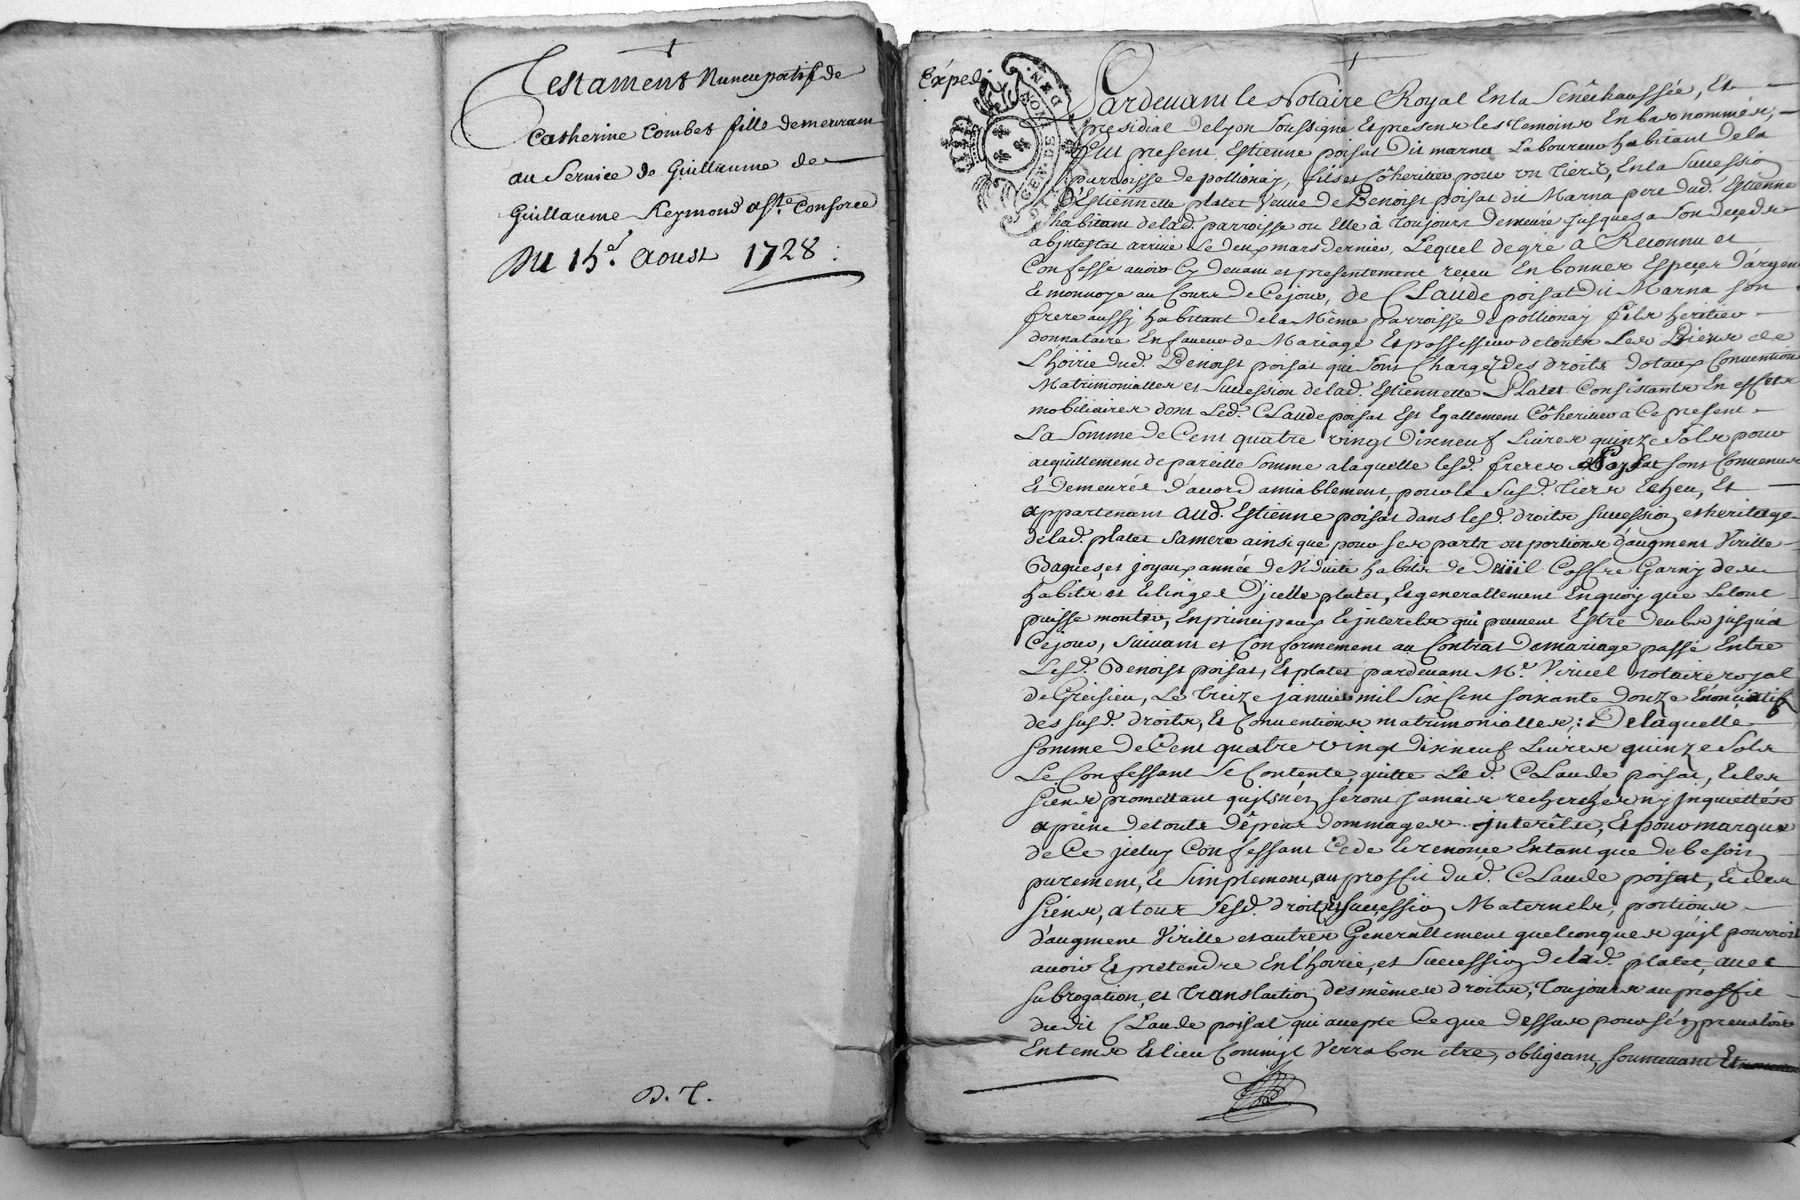 Testament Nuncupatif de
Catherine Combet fille demeurant
au Service de Guillaume de
Guillaume Reymond aste Consorce
Du 15e. Aoust 1728 :
D. T.
Exped.
GEN. DE LYON
Pardevant le Notaire Royal En la Senêchaussée, Et
presidial de lyon soussigné Es presens les temoins En bas nommés,
fut present Estienne poisat Dit marna Laboureur habitant de la
parroisse de pollionay, fils et Côheritier pour un tiers, En la succession
D'Estiennette platet veuve de Benoist poisat dit Marna pere dud. Estienne
habitant de lad. parroisse ou Elle à toujours demeuré jusques a son deceds
abjntestat arrivé le deux mars dernier, Lequel de gré à Reconnu et
Confessé avoir Cy devant et presentement reçeu En bonnes Espeçes d'argent
Et monnoye au Cours de Cejour, de Claude poisat dit Marna son
frere aussy habitant de la Même parroisse de pollionay fils heritier
donnataire En faveur de Mariage Et possesseur de toutes Les Biens de
L'hoirie dud. Benoist poisat qui sont Chargés des droits dotaux Convention
Matrimonialles et succession de lad. Estiennette Platet Consistants En effets
mobiliaires dont Led. Claude poisat Est Egallement Côheritier a Ce present
La somme de Cent quatre vingt dixneuf Livres quinze sols pour
acquittement de pareille somme a laquelle lesd. freres Poysat sont Convenus
Et Demeurés d'acord amiablement, pour le susd. tiers Echeu, Et
appartenant aud. Estienne poisat dans lesd. droits succession et heritage
de lad. platet sa mere ainsi que pour ses parts ou portions d'augment Virille
Bagues, et joyaux année de Viduité habits de deüil Coffre Garny des
habits et Linges D'jcelle platet, Et generallement En quoy que Le tout
puisse monter, En principaux Et jnterets qui peuvent Estre deubs jusqu'a
Cejour, suivant et Conformement au Contrat de mariage passé Entre
Lesd. Benoist poisat, Et platet pardevant Me. Viricel notaire royal
de Greisieu, Le treize janvier mil six cent soixante douze Enonciatif
des susd. droits, Et Conventions matrimonialles, : De laquelle
somme de Cent quatre vingt dixneuf Livres quinze sols
Le Confessant se Contente, quitte Led. Claude poisat, Et les
siens promettant qu'jls n'en seront jamais recherchés ny jnquiettés
a peine de touts dêpens dommages jnterêts, Et pour marque
de Ce jceluy Confessant Cede Et renonce En tant que de besoin
purement, Et simplement, au proffit dud. Claude poisat, Et des
siens, a tous sesd. droits succession Maternels, portions
d'augment Virille et autres Generallement quelconques qu'jl pourroit
avoir Et pretendre En L'hoirie, et succession de lad. platet, avec
subrogation, et translation des mêmes droits, toujours au proffit
du dit Claude poisat qui accepte Ce que dessus pour s'en prevaloir
En tems Et lieu Comm'jl verra bon etre, obligeant, soumettant